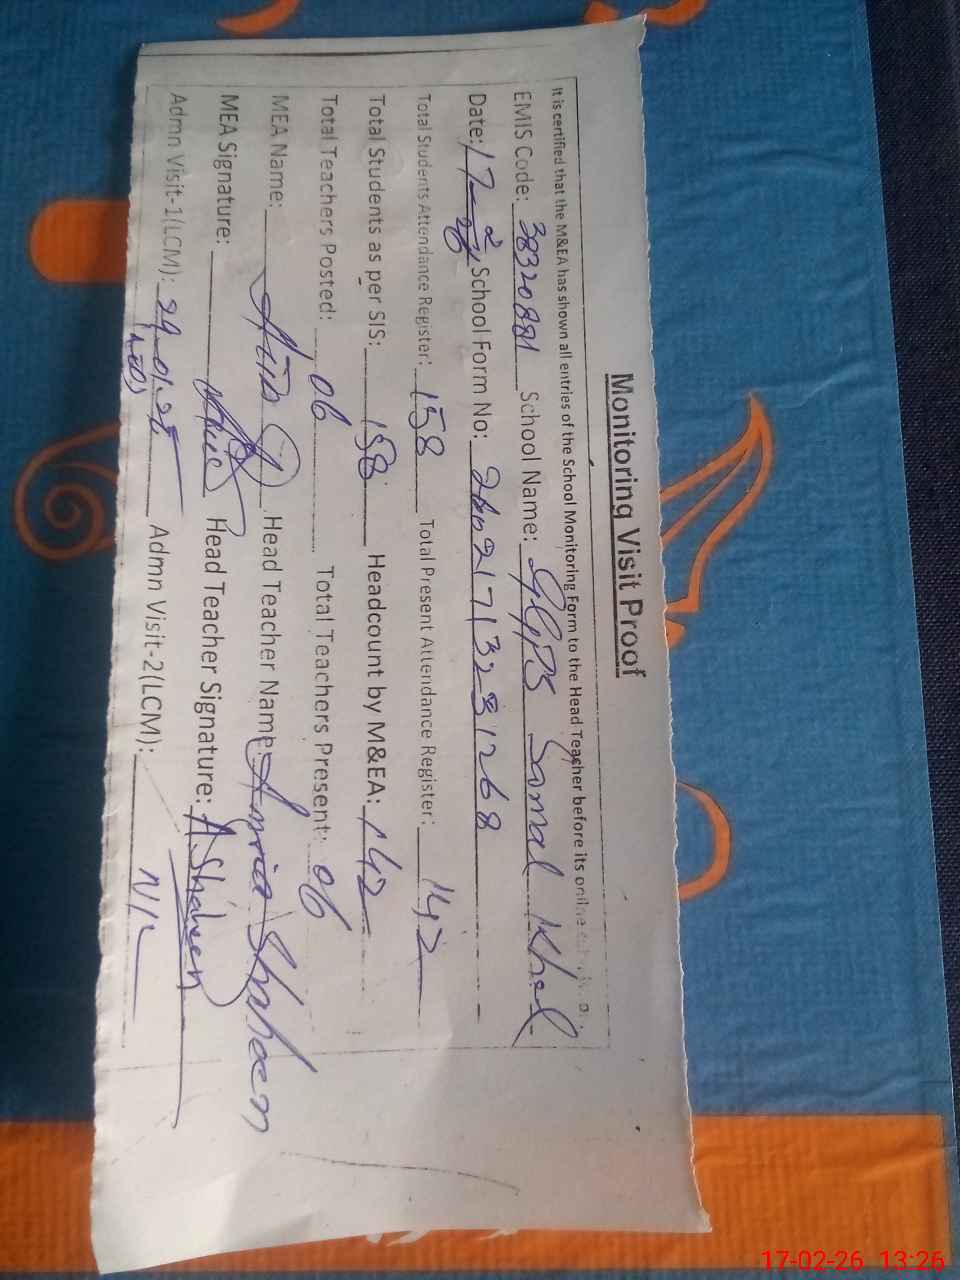 Monitoring Visit Proof
It is certified that the M&EA has shown all entries of the School Monitoring Form to the Head Teacher before its online
EMIS Code: 38320881 School Name: GGPS Samal Khel
Date: 17-2-26 School Form No:
Total Students Attendance Register: 158 Total Present Attendance Register: 142
Total Students as per SIS: 158 Headcount by M&EA: 142
Total Teachers Posted: 06 Total Teachers Present: 06
MEA Name: Head Teacher Name: Shaheen
MEA Signature: Head Teacher Signature: A Shaheen
Admn Visit-1(LCM): Admn Visit-2(LCM): NIL
17-02-26 13:26